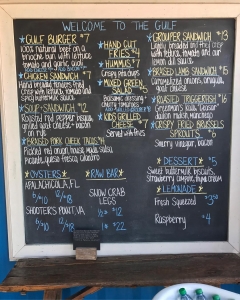 WELCOME TO THE GULF
★GULF BURGER★ $7
100% natural beef on a
brioche bun with lettuce
tomato and garlic aioli
★CHICKEN SANDWICH★ $7
Hand breaded tenders fried
crisp with lettuce, tomato and
spicy buttermilk sauce
★SOUP+SANDWICH★ $12
Roasted red pepper bisque,
grilled goat cheese + bacon
on rye
★BRAISED PORK CHEEK TACOS★
Pickled red onion, house made salsa,
avocado, queso fresco, cilantro
★HAND CUT
FRIES★
★HUMMUS★ $7
Crispy pita chips
★MIXED GREEN
SALAD★ $5
Balsamic dressing
cherry tomatoes
★KIDS GRILLED
CHEESE★ $7
Served with fries
★GROUPER SANDWICH★ $13
Lightly breaded and fried crisp
with lettuce, tomato and
lemon aioli sauce
★BRAISED LAMB SANDWICH★
Caramelized onions, arugula,
goat cheese
★ROASTED TRIGGERFISH★ $16
bacon, manchego
★CRISPY FRIED BRUSSELS
SPROUTS★
Sherry vinegar, bacon
★DESSERT★ $5
Sweet buttermilk biscuits,
strawberry compote, thyme cream
★LEMONADE★
Fresh Squeezed $3.50
Raspberry $4
★OYSTERS★
APALACHICOLA, FL
6/$10 12/$18
SHOOTERS POINT, VA
6/$10 12/$18
★RAW BAR★
SNOW CRAB
LEGS
1/2 # $12
1# $22